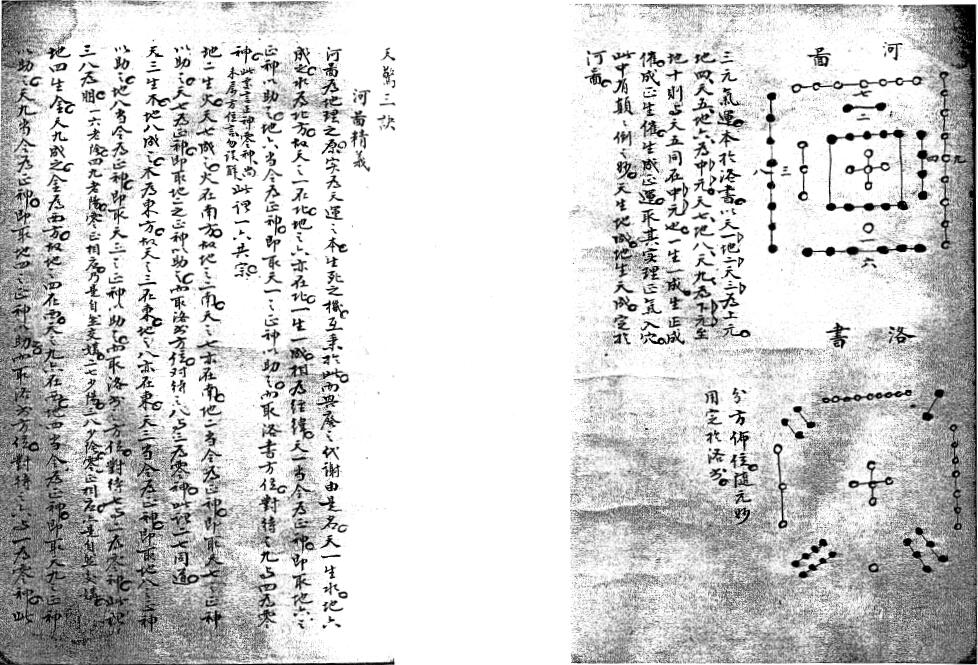 河圖
七
二
九
四
三
八
一
六
三元氣運本於洛書以天一地二天三為上元
地四天五地六為中元天七地八天九為下元至
地十則與天五同在中元也一生一成生正成
催成正生催生成正運取其實理正氣入穴
此中有顛之倒之妙天生地成地生天成定於
河圖
洛書
分方佈位隨元妙
用定於洛書
天驚三訣
河圖精義
河圖為地理之原實為天運之本生死之機互乘於此而興廢之代謝由是名天一生水地六
成之水為北方故天之一在北地之六亦在北一生一成相為經緯天一當令為正神即取地六之
正神以助之地六當令為正神即取天一之正神以助之而取洛書方位對待之九與四為零
神此謂一六共宗
此業言正神零神尚
未屬方位言勿誤解
地二生火天七成之火在南方故地之二南天之七亦在南地二當令為正神即取天七之正神
以助之天七為正神即取地二之正神以助之而取洛書方位對待之八與三為零神此謂二七同道
天三生木地八成之木為東方故天之三在東地之八亦在東天三當令為正神即取地八之正神
以助之地八當令為正神即取天三之正神以助之而取洛書方位對待七與二為零神此謂
三八為朋
一六老陰四九老陽零正相度乃是自然交媾二七少陽三八少陰零正相度亦是自然交媾
地四生金天九成之金為西方故地之四在西天之九亦在西地四當令為正神即取天九之正神
以助之天九當令為正神即取地四之正神以助而取洛書方位對待之六與一為零神此